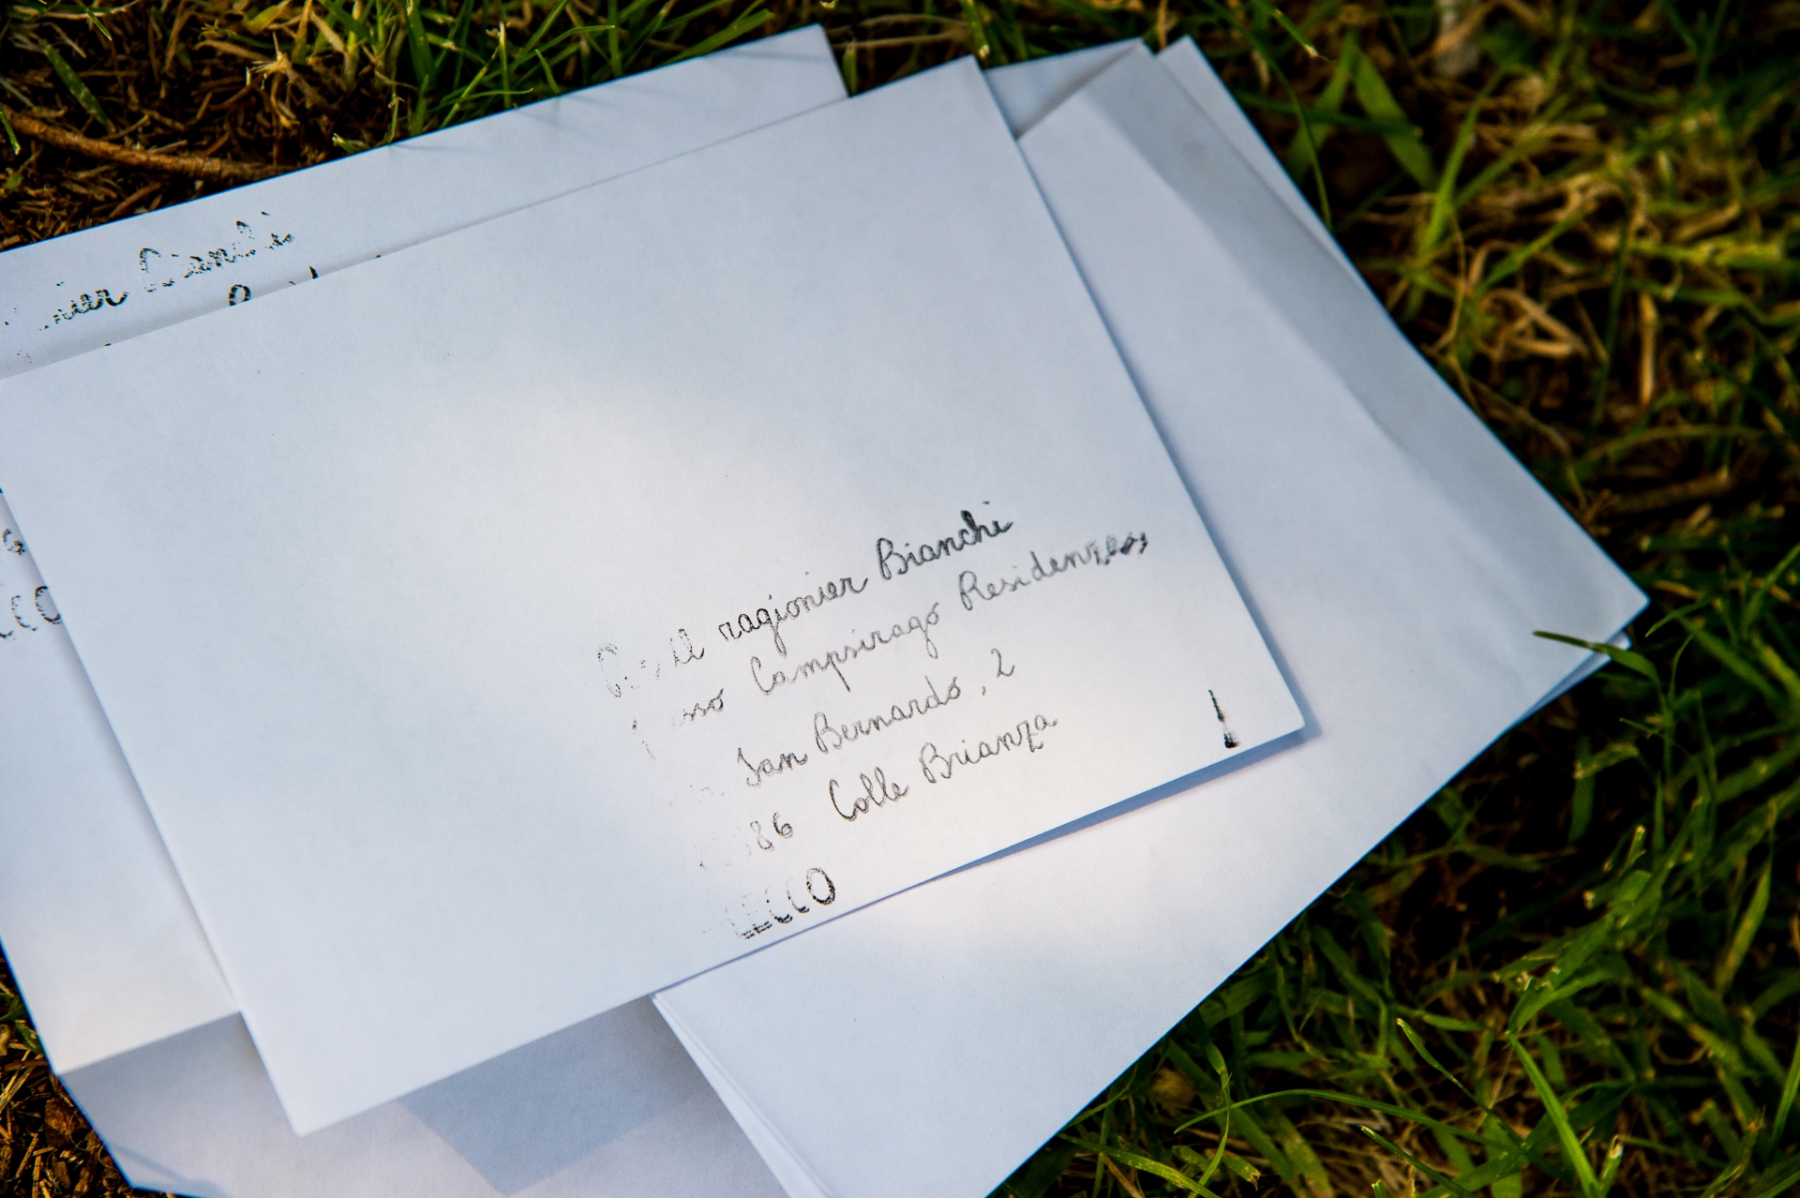 nier Bianchi
il ragionier Bianchi
Campsirago Residenza
San Bernardo, 2
86 Colle Brianza
LECCO